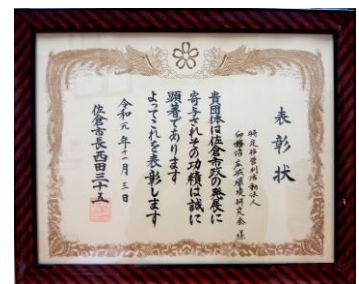 表彰状
特定非営利活動法人
印旛沼広域環境研究会 様
貴団体は佐倉市政の発展に
寄与されその功績は誠に
顕著であります
よってこれを表彰します
令和元年十一月三日
佐倉市長西田三十五